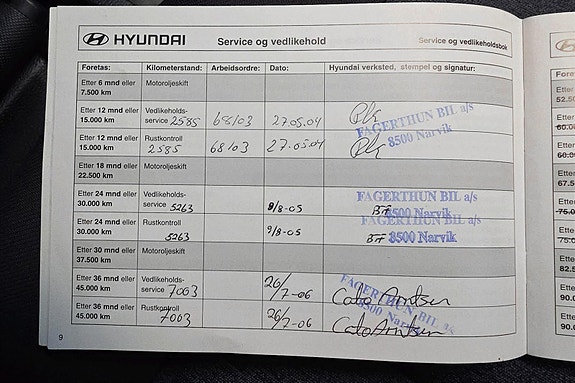 HYUNDAI Service og vedlikehold Service og vedlikeholdsbok
Foretas: Kilometerstand: Arbeidsordre: Dato: Hyundai verksted, stempel og signatur:
Etter 6 mnd eller Motoroljeskift
7.500 km
Etter 12 mnd eller Vedlikeholds-
15.000 km service 2585 68103 27.05.04
FAGERTHUN BIL a/s
Etter 12 mnd eller Rustkontroll
15.000 km 2585 68103 27.05.04
8500 Narvik
Etter 18 mnd eller Motoroljeskift
22.500 km
Etter 24 mnd eller Vedlikeholds-
30.000 km service 5263 9/8-05
FAGERTHUN BIL a/s
8500 Narvik
Etter 24 mnd eller Rustkontroll
30.000 km 5263 9/8-05
FAGERTHUN BIL a/s
8500 Narvik
Etter 30 mnd eller Motoroljeskift
37.500 km
Etter 36 mnd eller Vedlikeholds-
45.000 km service 7003 26/7-06
FAGERTHUN BIL a/s
8500 Narvik
Cato Arntsen
Etter 36 mnd eller Rustkontroll
45.000 km 7003 26/7-06 Cato Arntsen
9